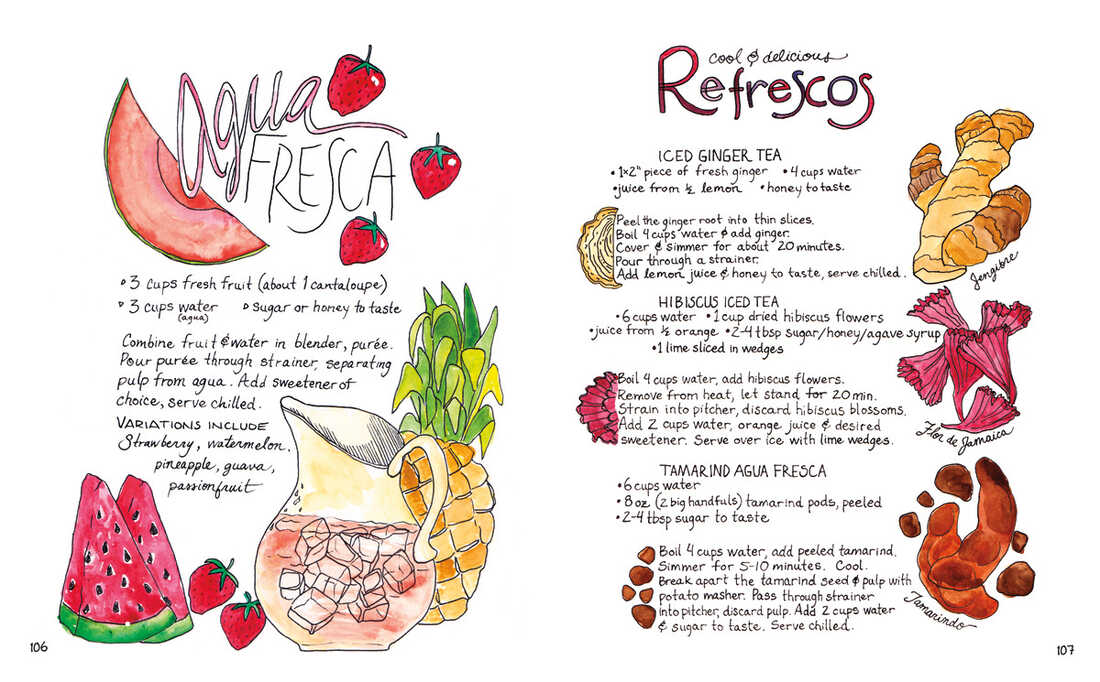 Agua
FRESCA
3 cups fresh fruit (about 1 cantaloupe)
3 cups water
(agua)
sugar or honey to taste
Combine fruit & water in blender, purée.
Pour purée through strainer, separating
pulp from agua. Add sweetener of
choice, serve chilled.
VARIATIONS INCLUDE
Strawberry, watermelon,
pineapple, guava,
passionfruit
106
cool & delicious
Refrescos
ICED GINGER TEA
•1×2" piece of fresh ginger •4 cups water
•juice from ½ lemon •honey to taste
Peel the ginger root into thin slices.
Boil 4 cups water & add ginger.
Cover & simmer for about 20 minutes.
Pour through a strainer.
Add lemon juice & honey to taste, serve chilled.
Jengibre
HIBISCUS ICED TEA
•6 cups water •1 cup dried hibiscus flowers
•juice from ½ orange •2-4 tbsp sugar/honey/agave syrup
•1 lime sliced in wedges
Boil 4 cups water, add hibiscus flowers.
Remove from heat, let stand for 20 min.
Strain into pitcher, discard hibiscus blossoms.
Add 2 cups water, orange juice & desired
sweetener. Serve over ice with lime wedges.
Flor de Jamaica
TAMARIND AGUA FRESCA
•6 cups water
•8 oz (2 big handfuls) tamarind pods, peeled
•2-4 tbsp sugar to taste
Boil 4 cups water, add peeled tamarind.
Simmer for 5-10 minutes. Cool.
Break apart the tamarind seed & pulp with
potato masher. Pass through strainer
into pitcher, discard pulp. Add 2 cups water
& sugar to taste. Serve chilled.
Tamarindo
107